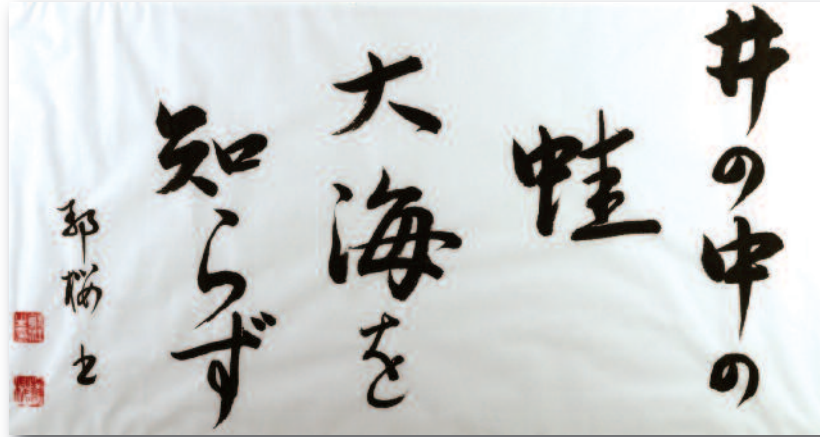 井の中の
蛙
大海を
知らず
郢桜書